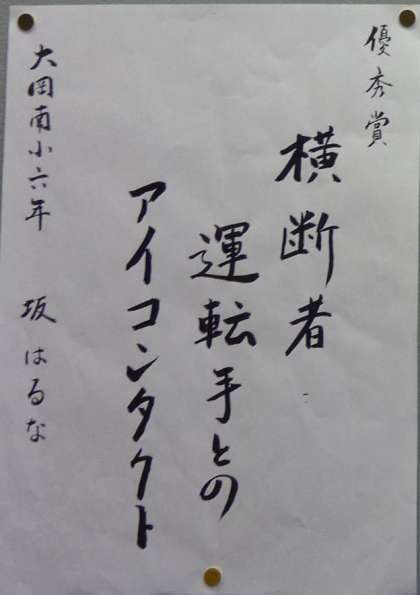 優秀賞
横断者
運転手との
アイコンタクト
大岡南小六年 坂はるな